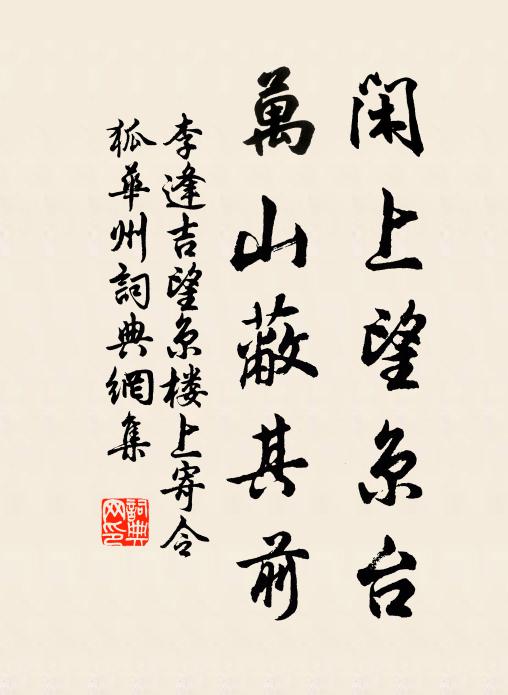 闲上望京台
萬山蔽其前
李逢吉望京楼上寄令
狐華州詞典網集
詞典網印